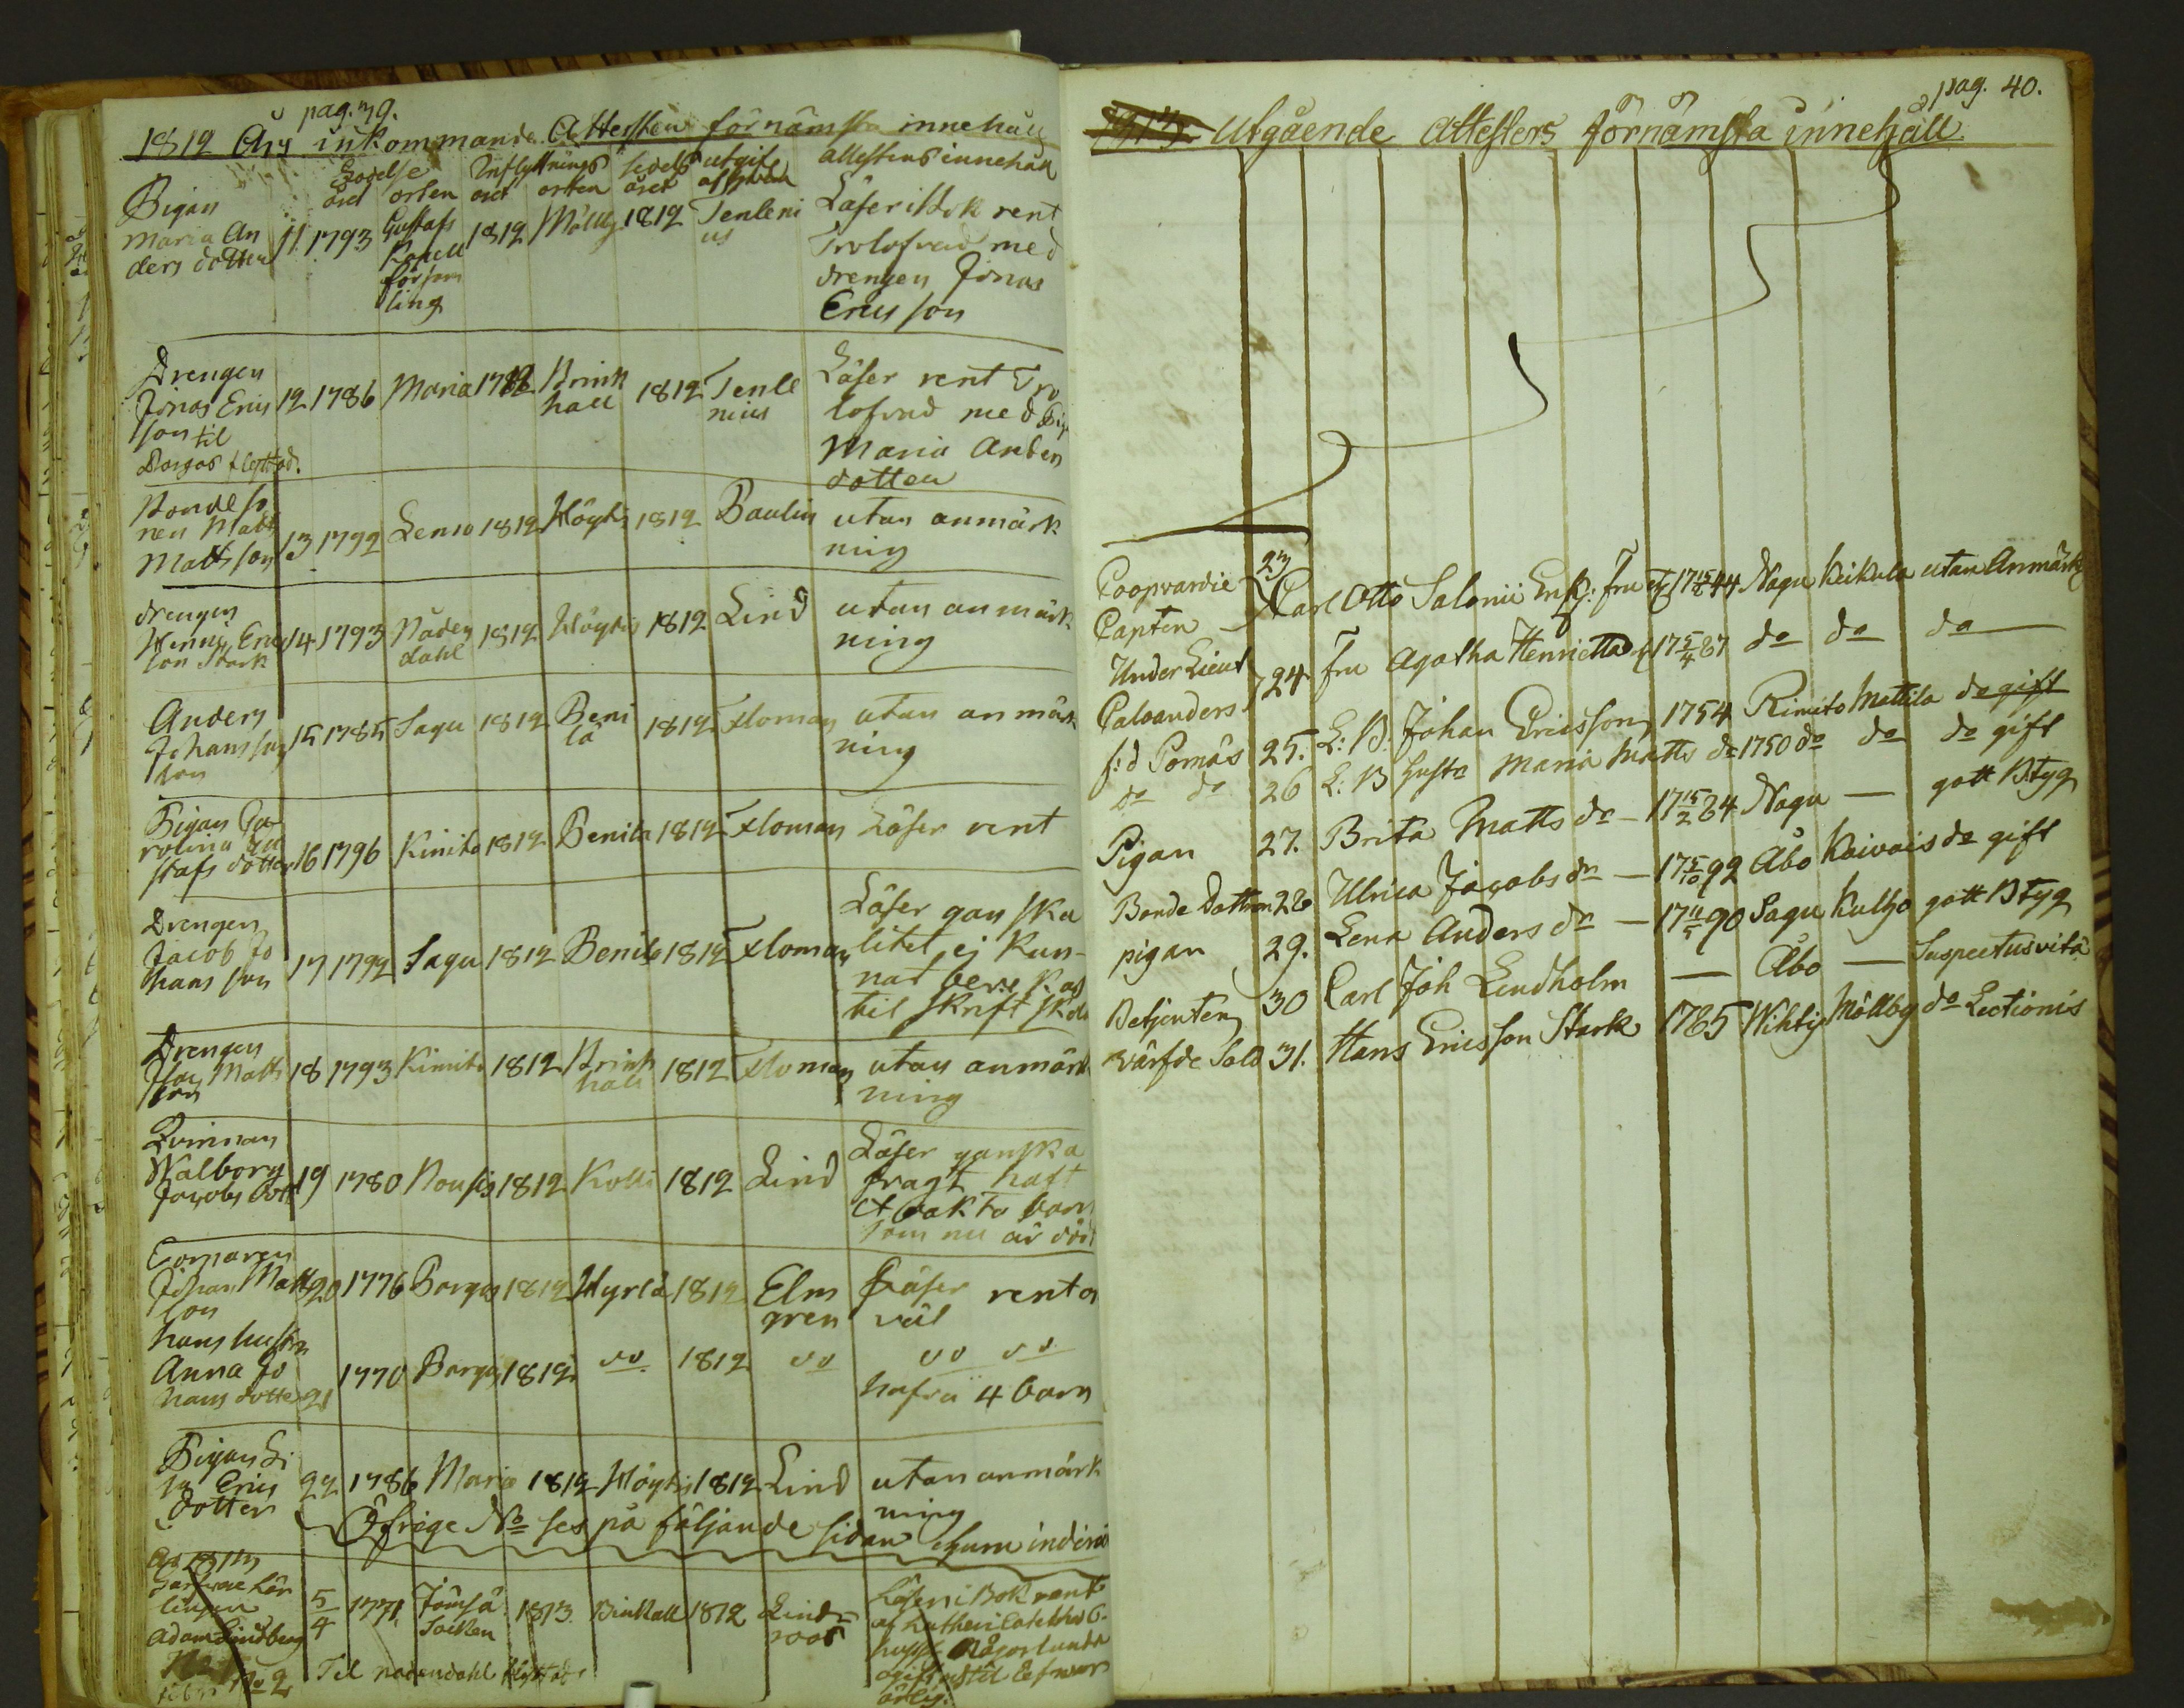 pag. 39.
1812 Års inkommande Attesters förnämsta innehåll
Födelse Inflyttnings sedels utgifv. attestens innehåll
året orten året orten året af hvem
Pigan
Maria An
ders dotter 11 1793 Gustafs 1812 Mölby 1812 Tenleni
us
Kapell
försam
ling
Läser i Bok rent
Trolofvad med
drengen Jonas
Ericsson
Drengen
Jonas Erics
son til
Pargas flyttad.
12 1786 Maria 1812 Brink
hall 1812 Tenle
nius
Läser rent Tro
lofvad med Pig
Maria Anders
dotter
Bondeso
nen Matts
Matsson 13 1792 Lemo 1812 Höyti 1812 Paulin utan anmärk
ning
drengen
Henric Erics
son Stark 14 1793 Nåden
dahl 1812 Höytis 1812 Lind utan anmärk
ning
Anders
Johansson
son 15 1785 Sagu 1812 Beni
lä 1812 Floman utan anmärk
ning
Pigan Ca
rolina Gu
stafs dotter 16 1796 Kimito 1812 Benila 1812 Floman Läser rent
Drengen
Jacob Jo
hansson 17 1792 Sagu 1812 Benila 1812 Floman
Läser gan ska
litet, ej kun-
nat
til skrift
Drengen
Matts
son 18 1793 Kimito 1812 Brink
hall 1812 Floman utan anmärk
ning
Qvinnan
Walborg
Jacobs dott 19 1780 Nousis 1812 Kolli 1812 Lind
Läser ganska
svagt haft
et oäkta barn
som nu är död
Johan Matts
son 20 1776 Pargas 1812 Hyrlä 1812 Elm
gren Läser rent o
väl
hans hustru
Anna Jo
hans dotter 21 1770 Pargas 1812 do 1812 do do do
hafva 4 barn
Pigan Li
sa Erics
dotter 22 1786 Maria 1812 Höytis 1812 Lind utan anmärk
ning
Öfrige No ses på följande sidan
Adam Lindberg
5/4 1771. Jämsä
Socken 1813. Binkall 1812 Lind-
roos
Läser i Bok rent
No 2 Til nådendahl flyttad
pag. 40.
1813 Utgående Attesters förnämsta innehåll
Coopvardie
Capten 23 Carl Otto Salonii Enk: fru 17 15/8 44 Nagu Keikula utan Anmärk
Under Lieut
Calvanders 24 fru Agatha Henrietta 17 5/4 87 do do do
f:d Pomås 25. L: B: Johan Ericsson 1754 Rimito Mattila do gift
do do 26 L: B Hustr Maria Matts do 1750 do do do gift
Pigan 27. Brita Matts do - 17 15/2 84 Nagu — gott Btyg
Bonde Dottren 28 Ulrica Jacobs dn — 17 5/10 92 Åbo Kaivois do gift
pigan 29. Lena Anders dn — 17 11/5 90 Sagu Kulho gott Btyg
Betjenten 30 Carl Joh Lindholm — Åbo — Suspectus vitä
värfde Sold 31. Hans Ericsson Stark 1785 Wihtis Mölby do Lectionis